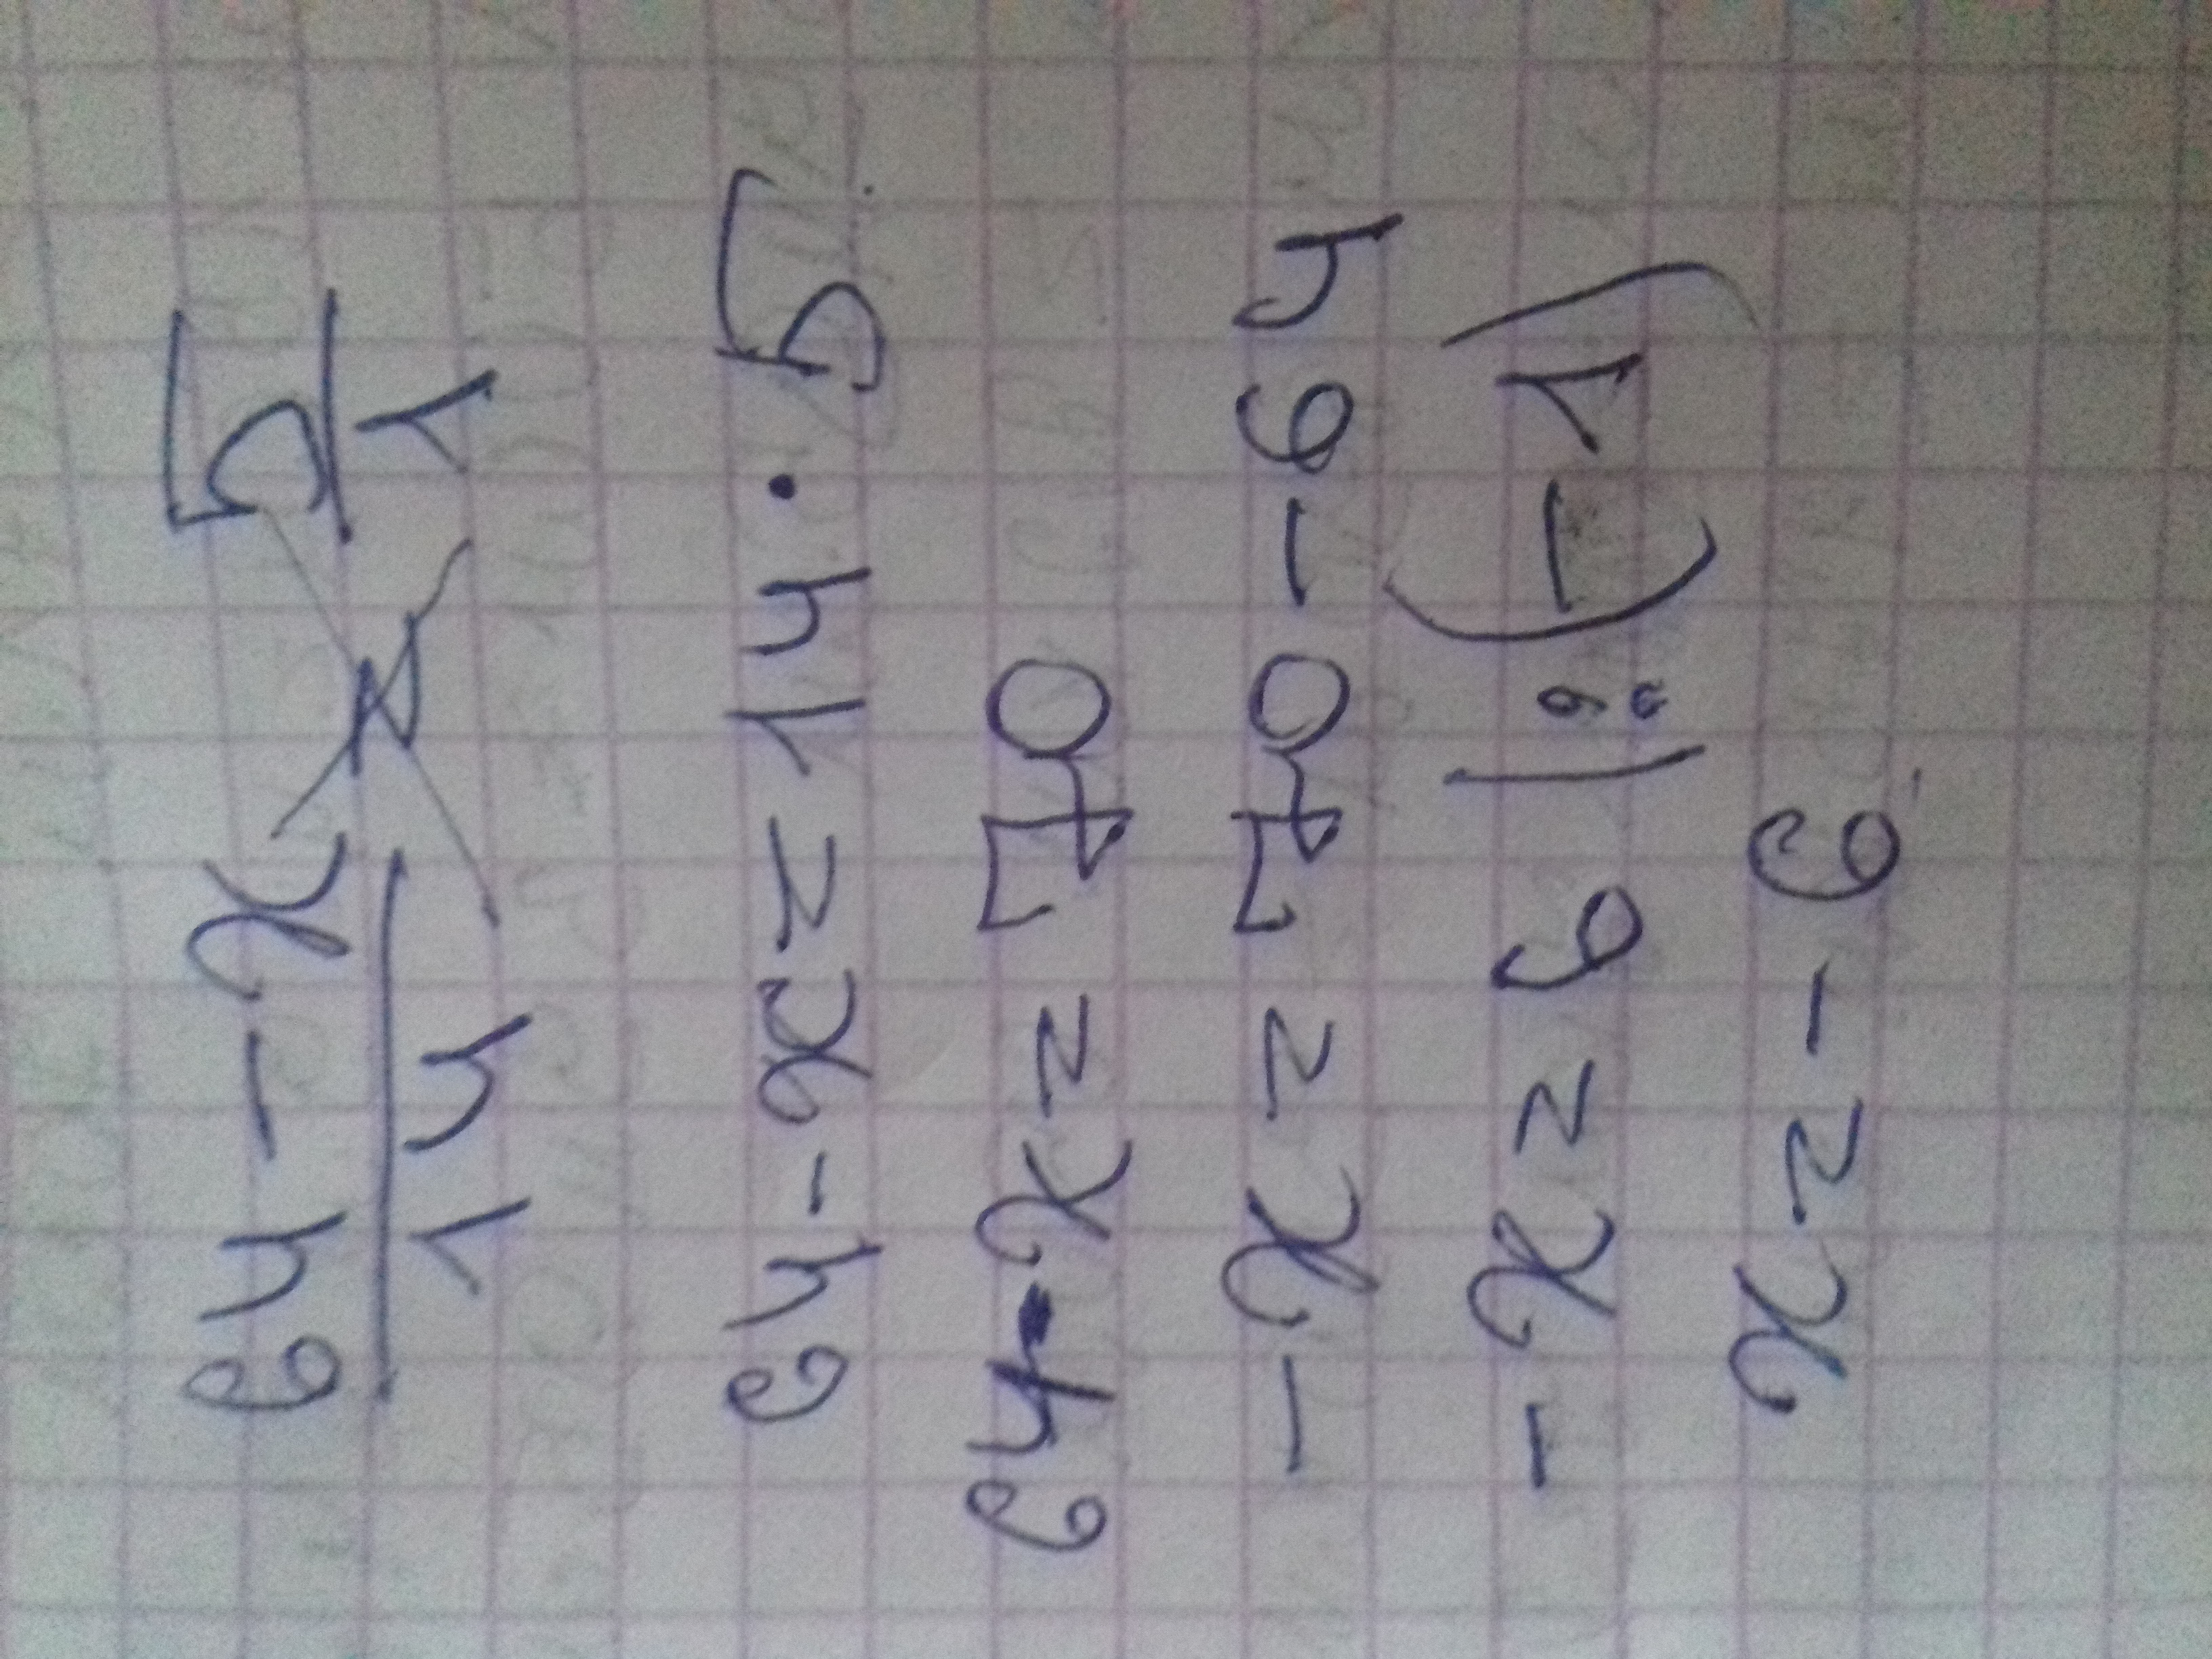 64 - x / 14 = 5 / 1
64 - x = 14 · 5
64 - x = 70
- x = 70 - 64
- x = 6 | : (-1)
x = -6